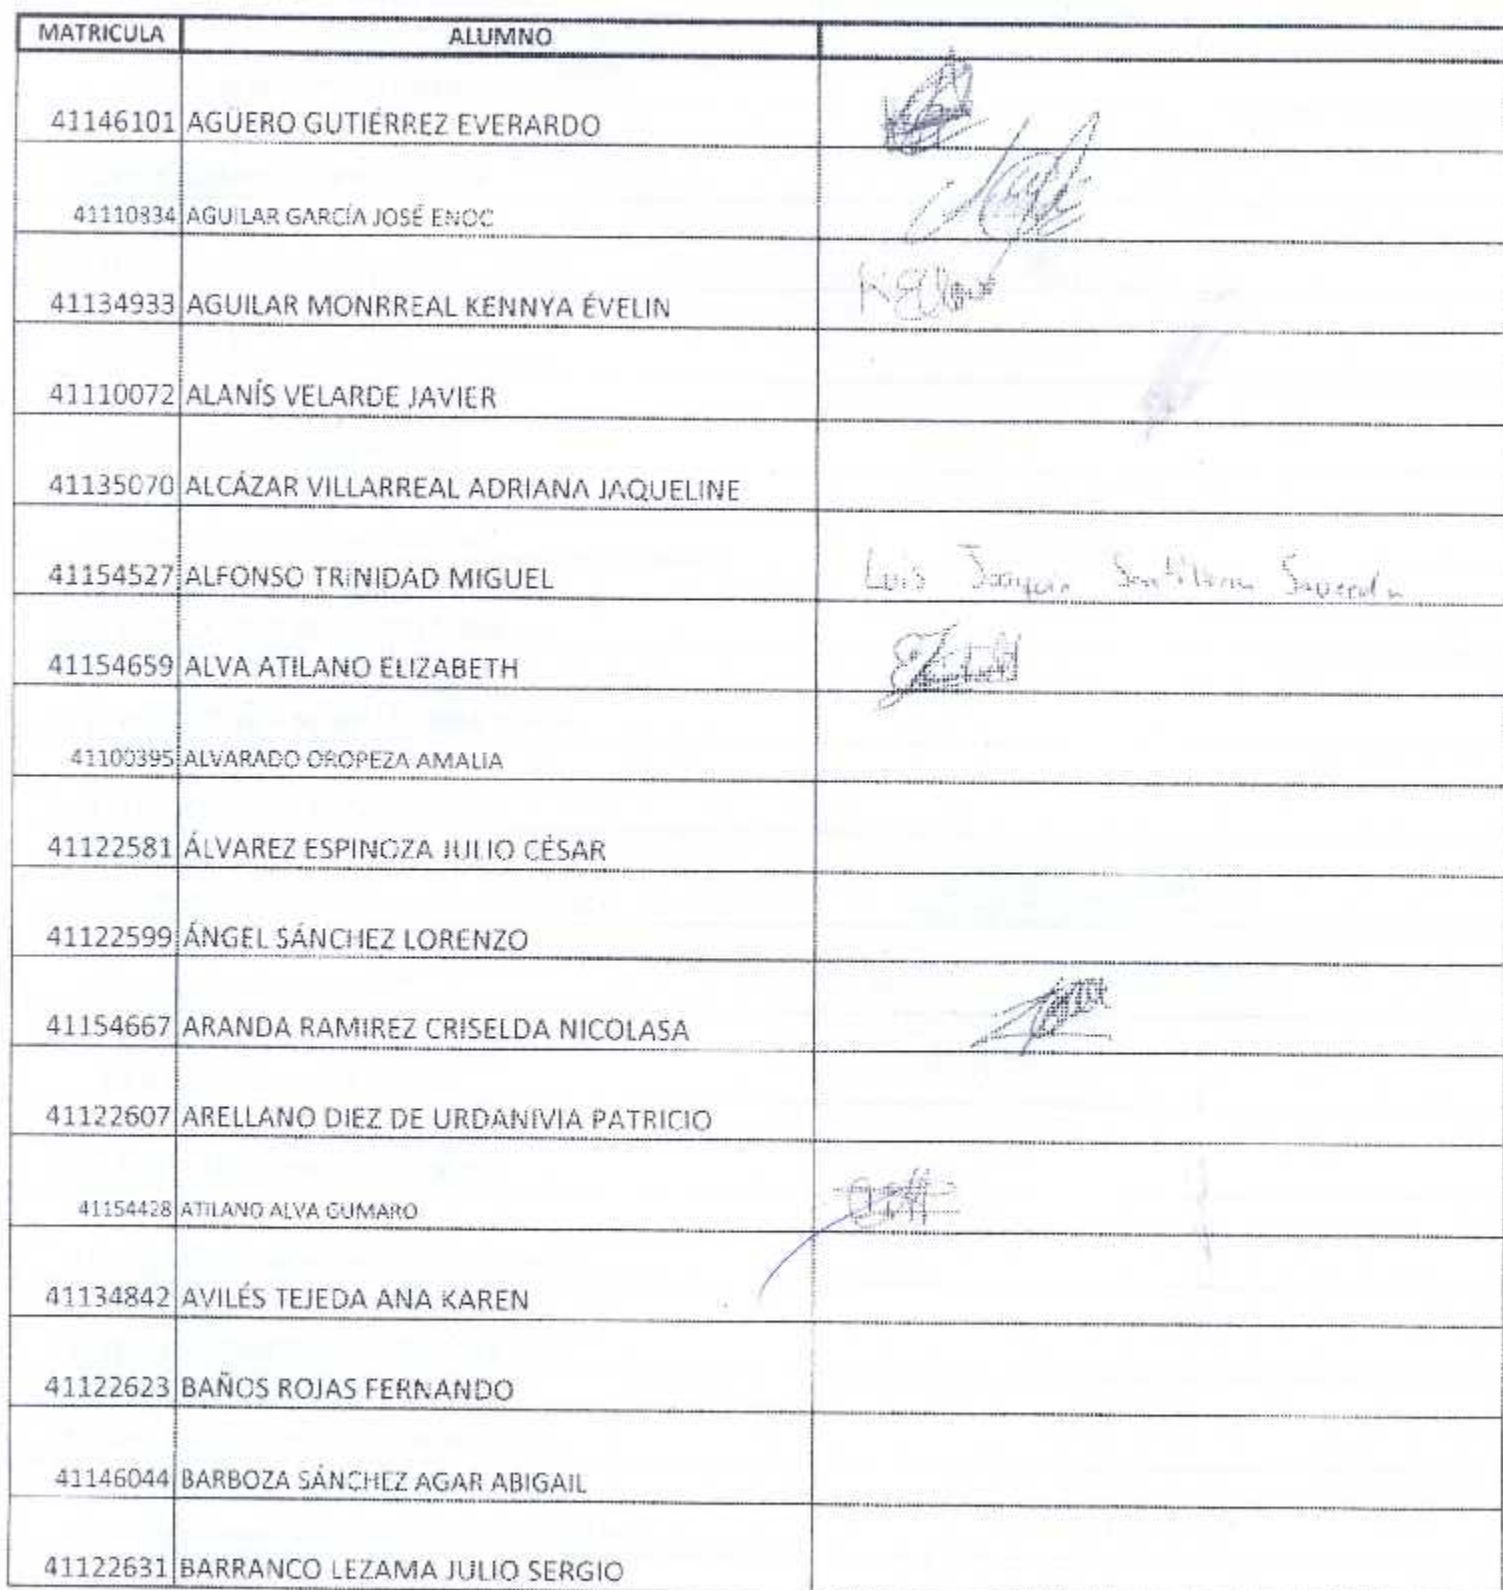 MATRICULA ALUMNO
41146101 AGÜERO GUTIÉRREZ EVERARDO
41110834 AGUILAR GARCÍA JOSÉ ENOC
41134933 AGUILAR MONRREAL KENNYA ÉVELIN
41110072 ALANÍS VELARDE JAVIER
41135070 ALCÁZAR VILLARREAL ADRIANA JAQUELINE
41154527 ALFONSO TRINIDAD MIGUEL Luis Joaquin
41154659 ALVA ATILANO ELIZABETH
41100395 ALVARADO OROPEZA AMALIA
41122581 ÁLVAREZ ESPINOZA JULIO CÉSAR
41122599 ÁNGEL SÁNCHEZ LORENZO
41154667 ARANDA RAMIREZ CRISELDA NICOLASA
41122607 ARELLANO DIEZ DE URDANIVIA PATRICIO
41154428 ATILANO ALVA GUMARO
41134842 AVILÉS TEJEDA ANA KAREN
41122623 BAÑOS ROJAS FERNANDO
41146044 BARBOZA SÁNCHEZ AGAR ABIGAIL
41122631 BARRANCO LEZAMA JULIO SERGIO